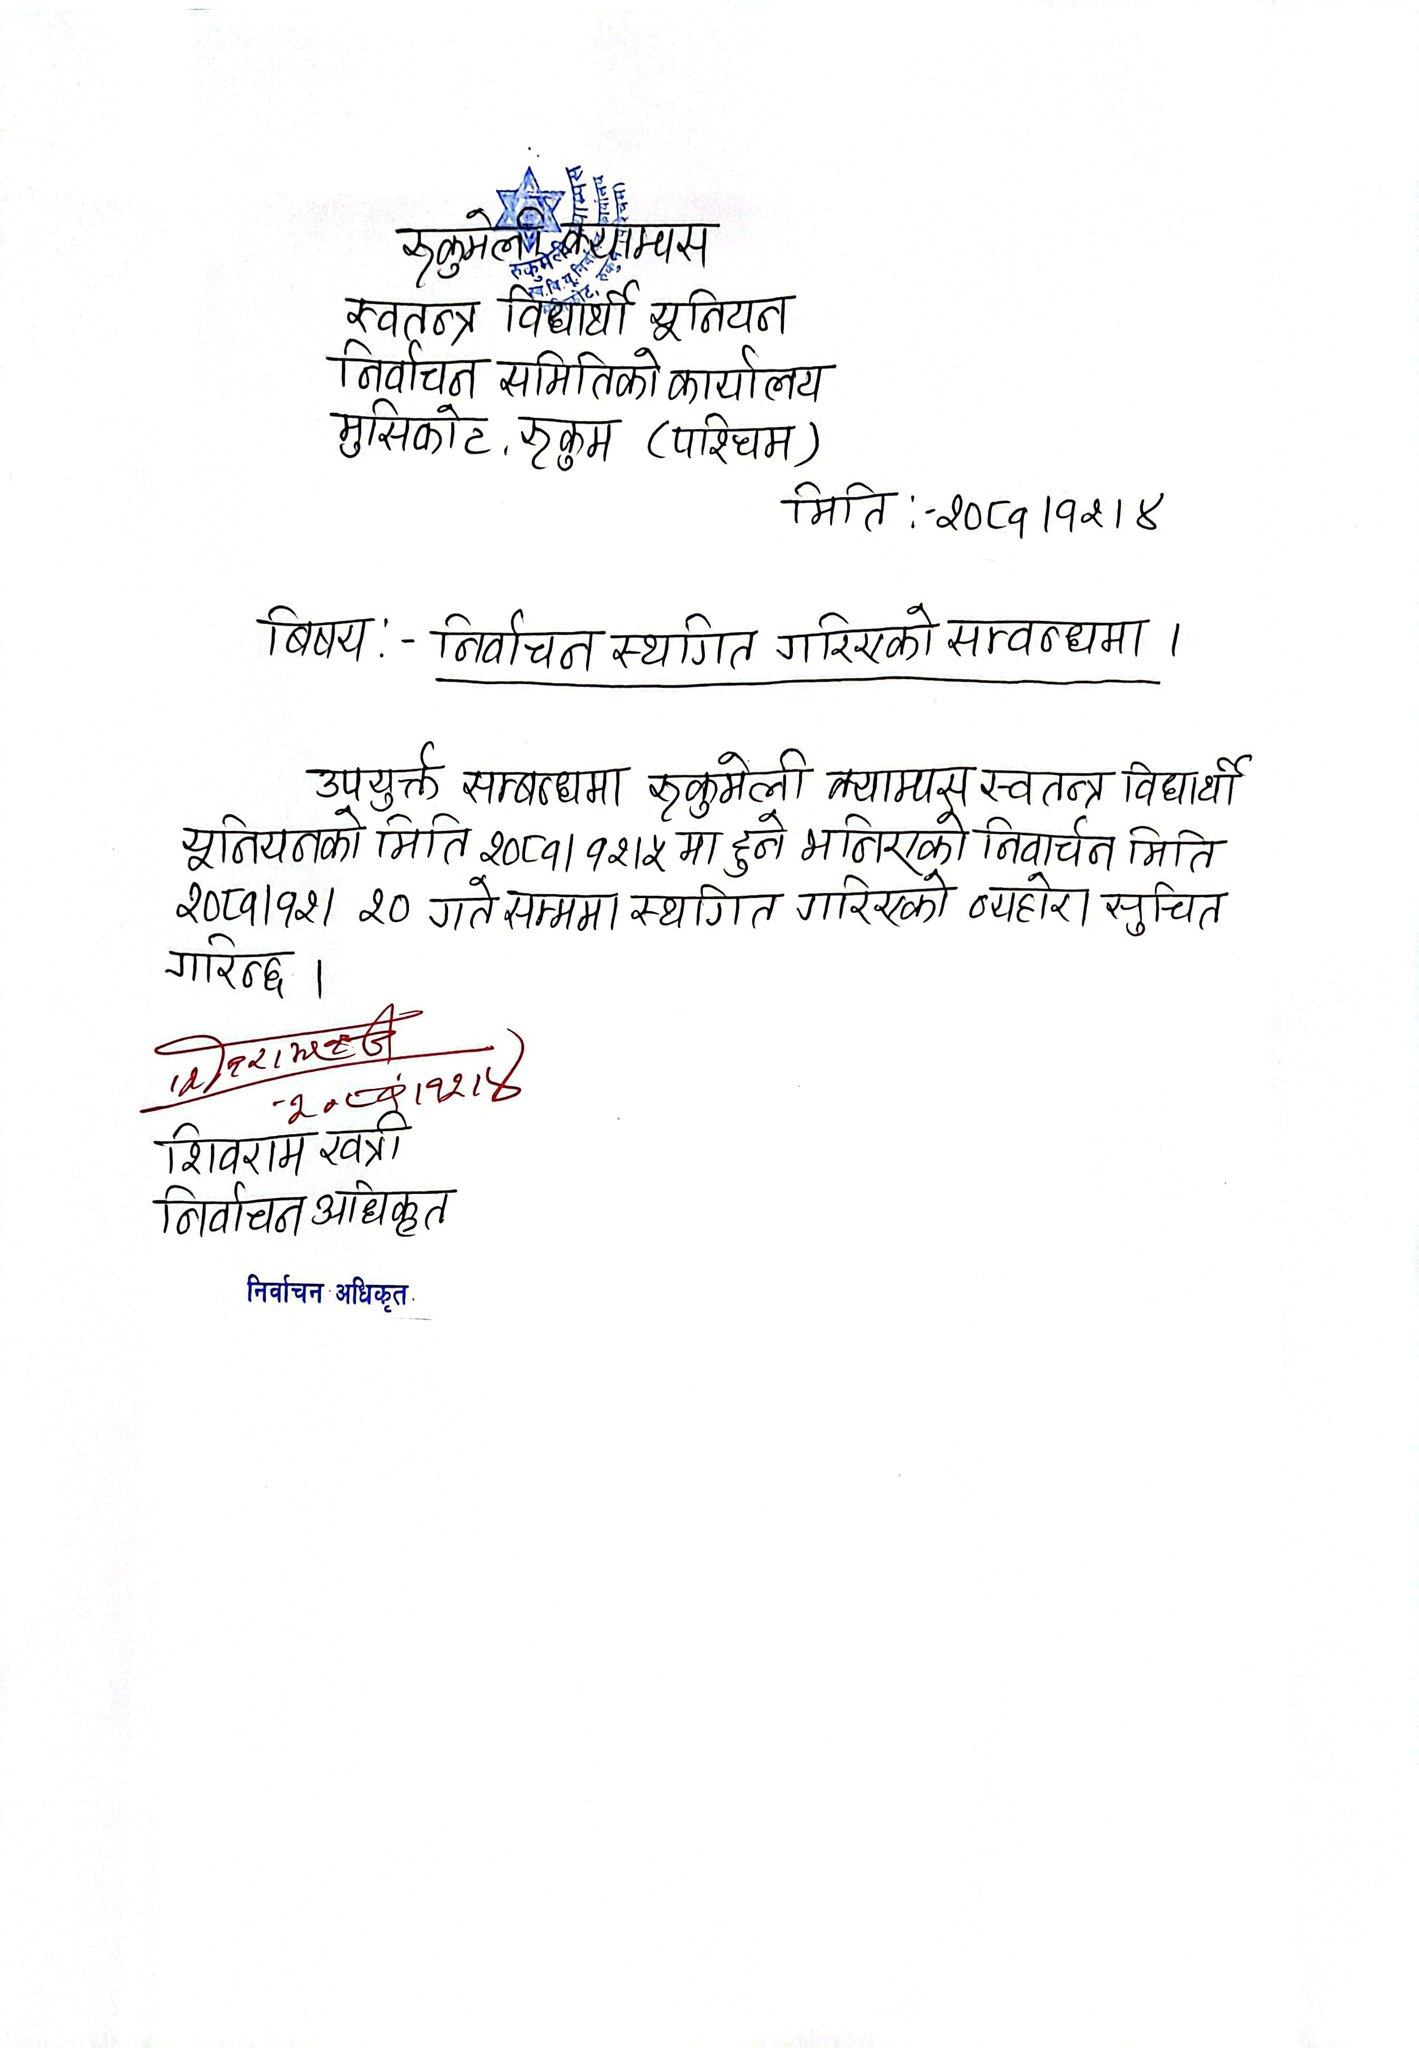 रुकुमेली क्याम्पस
स्वतन्त्र विद्यार्थी यूनियन
निर्वाचन समितिको कार्यालय
मुसिकोट, रुकुम (पश्चिम)
मिति :-२०८१।१२।४
बिषय :- निर्वाचन स्थगित गरिएको सम्वन्धमा ।
उपयुर्क्त सम्बन्धमा रुकुमेली क्याम्पस स्वतन्त्र विद्यार्थी
यूनियनको मिति २०८१।१२।५ मा हुने भनिएको निवार्चन मिति
२०८१।१२। २० गते सम्ममा स्थगित गरिएको व्यहोरा सुचित
गरिन्छ ।
२०८१।१२।४
शिवराम खत्री
निर्वाचन अधिकृत
निर्वाचन अधिकृत